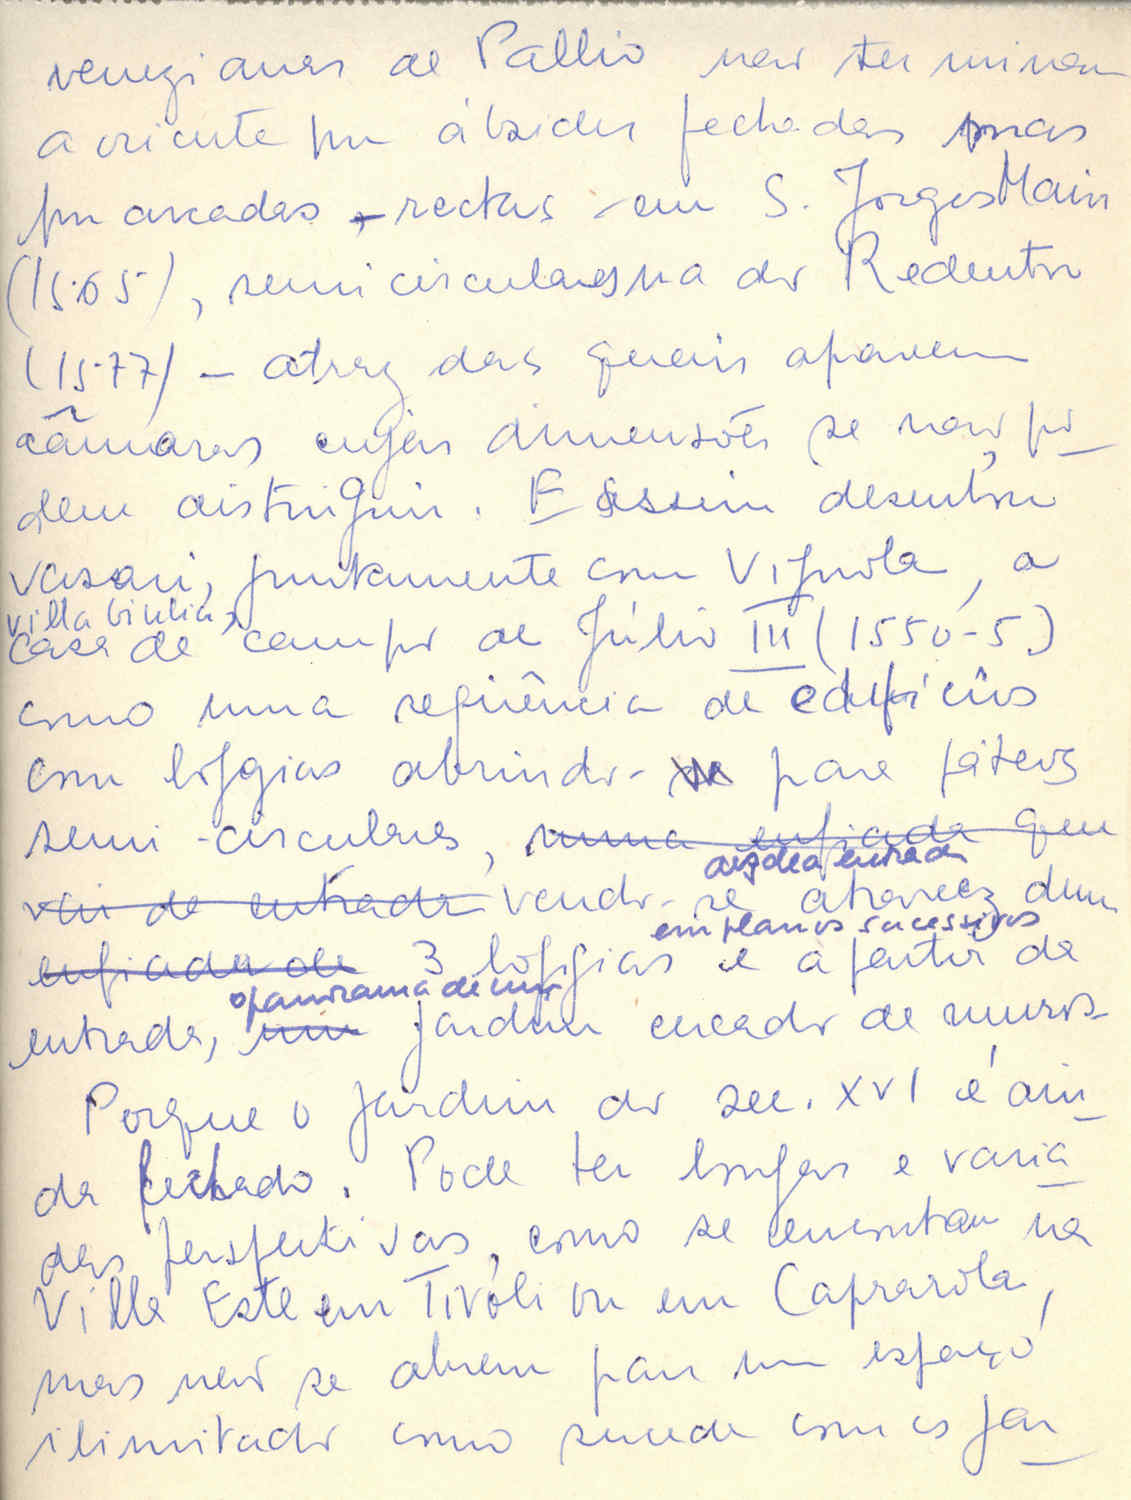 venezianas de Pallio não terminam
a oriente por ábsides fechadas mas
por arcadas, - rectas - em S. Jorge Maior
(1565), semicirculares na do Redentor
(1577) - atraz das quais aparecem
câmaras cujas dimensões se não po_
dem distinguir. E assim desenhou
Vasari, juntamente com Vignola, a
villa Giulia,
casa de campo de Júlio III (1550-5)
como uma seqüência de edifícios
com loggias abrindo- para páteos
semi-circulares, numa enfiada que
da entrada
vai de entrada vendo-se atravez dum
em planos sucessivos
enfiada de 3 loggias e a partir da
o panorama de um
entrada, um jardim cercado de muros-
Porque o jardim do sec. XVI é ain_
da fechado. Pode ter longas e varia_
das perspectivas, como se encontram na
Villa Este em Tivoli ou em Caprarola,
mas não se abrem para um espaço
ilimitado como sucede com os jar_